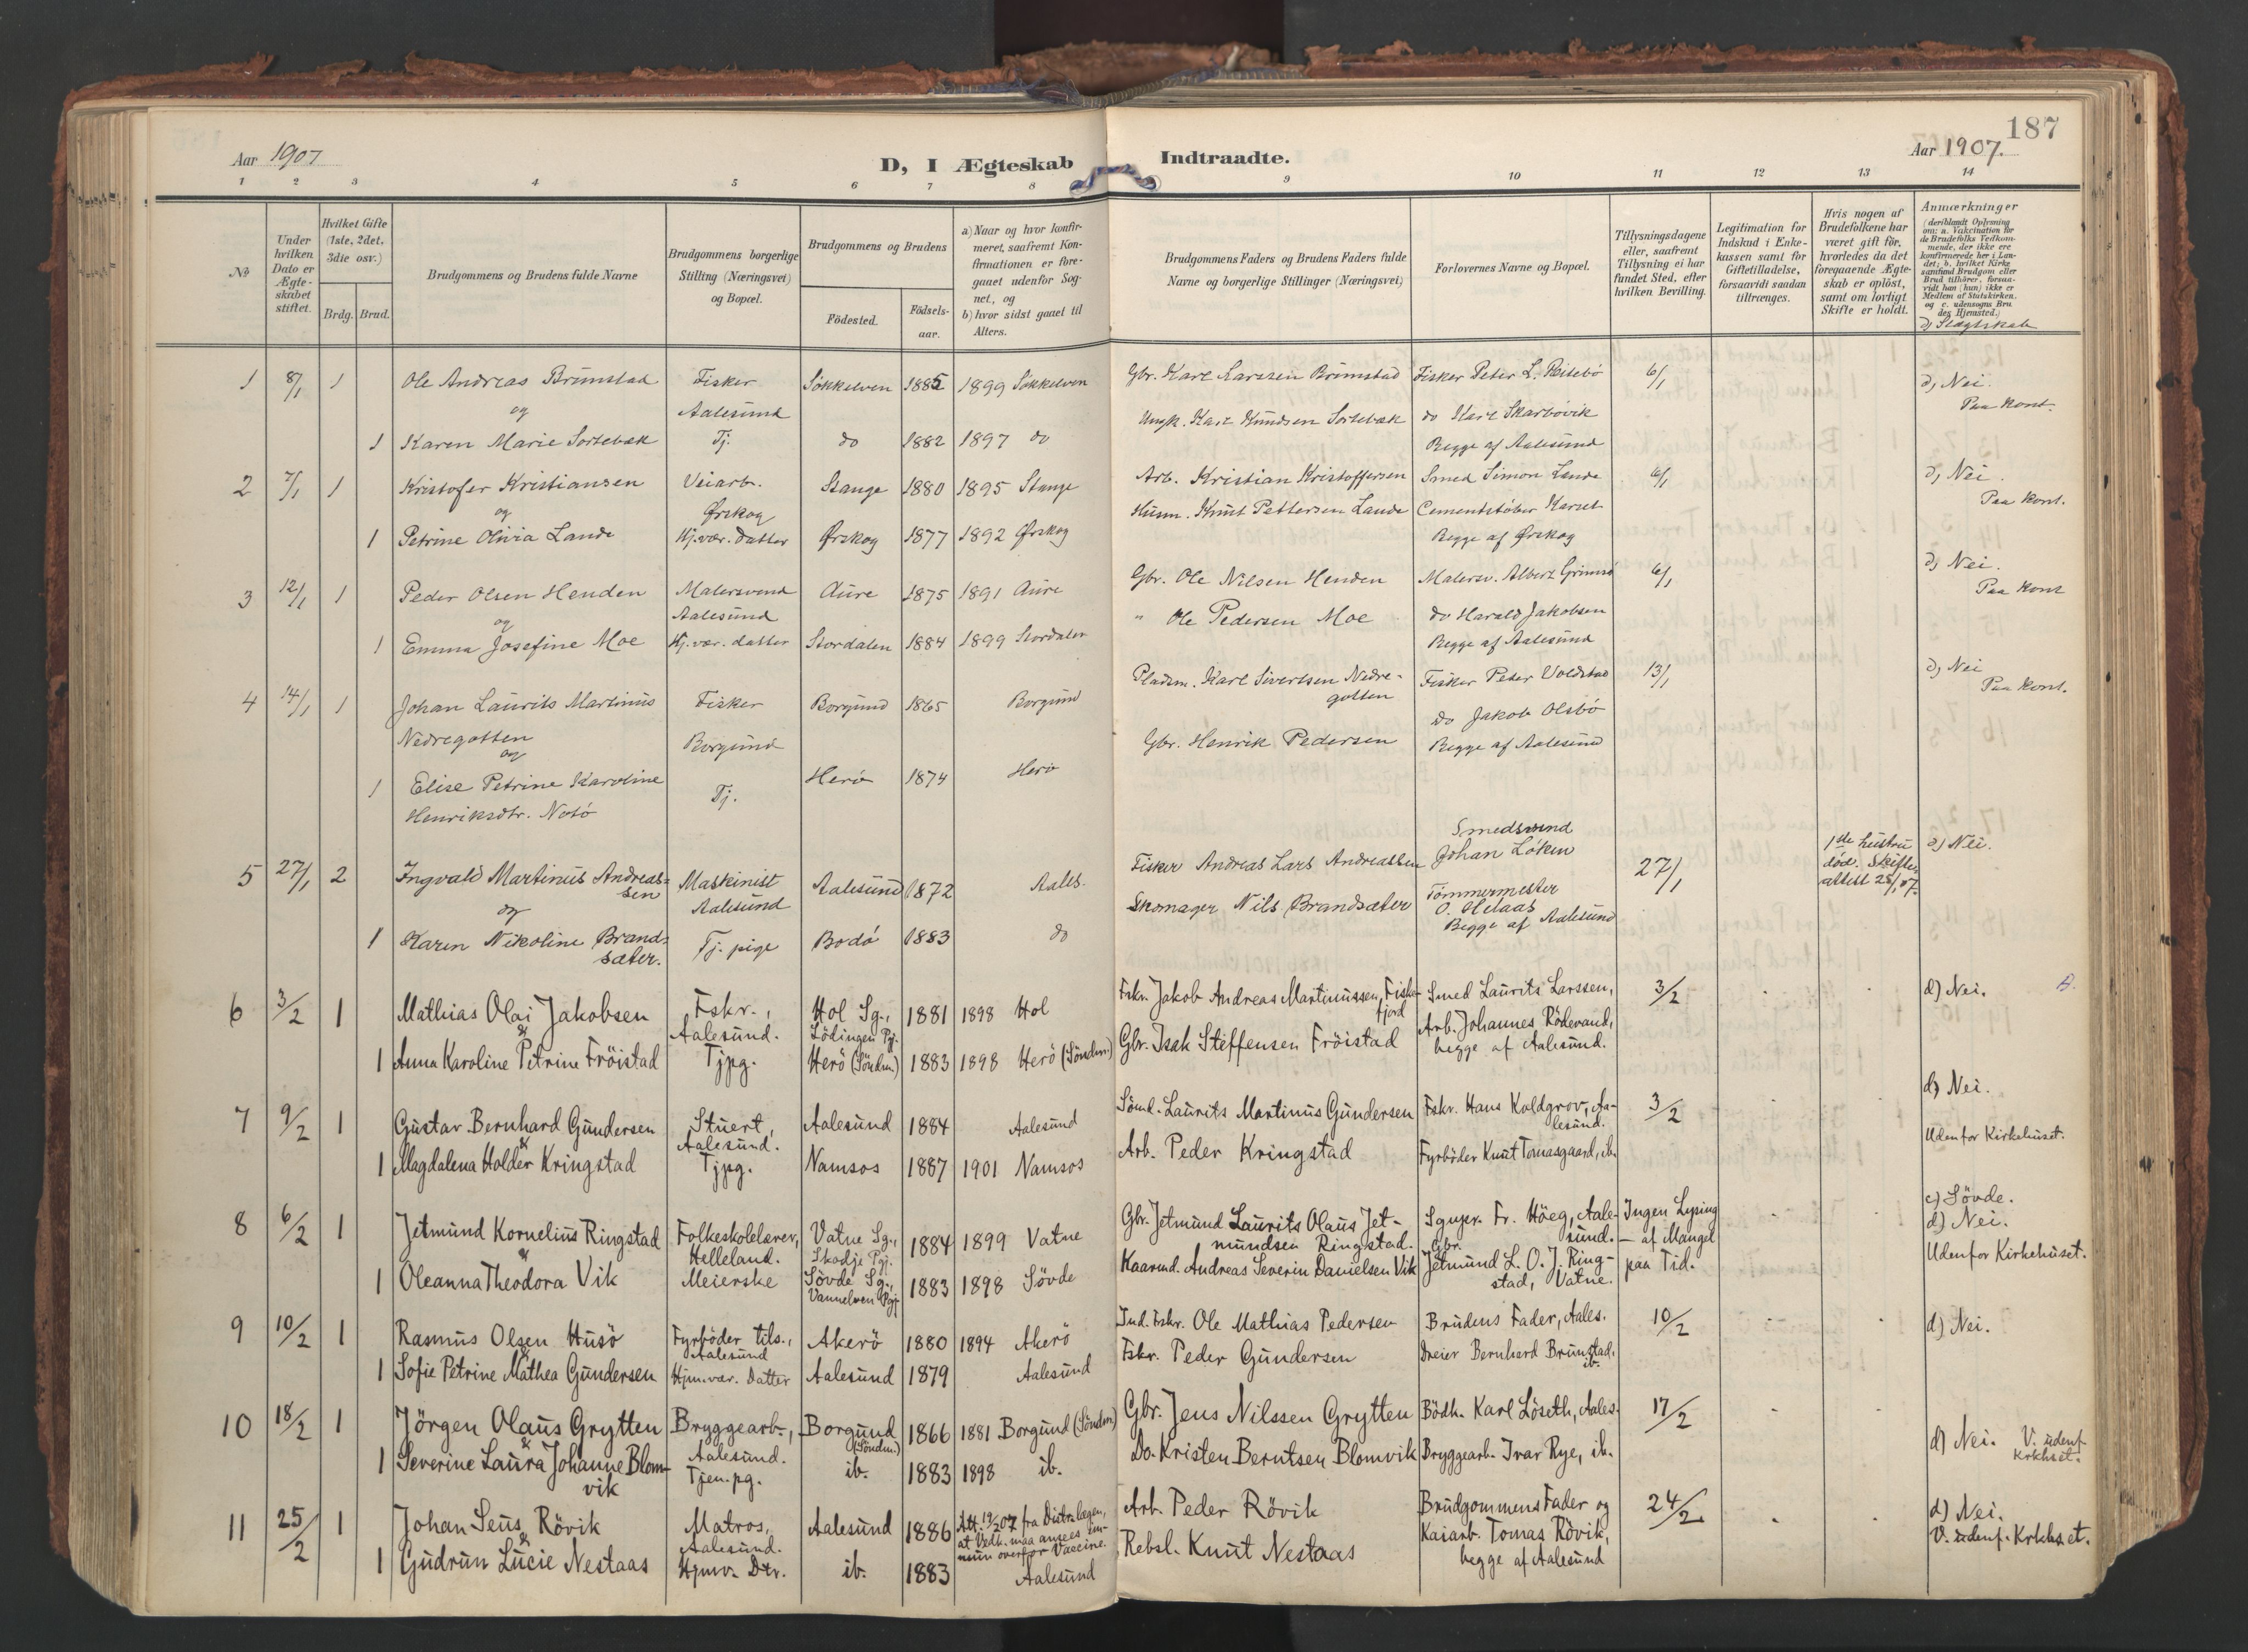 187
Aar 1907
D, I Ægteskab Indtraadte.
Aar 1907.
1 2 3 4 5 6 7 8 9 10 11 12 13 14
No
Under hvilken Dato er Ægteskabet stiftet.
Hvilket Gifte (1ste, 2det, 3die osv.)
Brdg. Brud.
Brudgommens og Brudens fulde Navne
Brudgommens borgerlige Stilling (Næringsvei) og Bopæl.
Brudgommens og Brudens
Födested. Födselsaar.
a) Naar og hvor konfirmeret, saafremt Konfirmationen er foregaaet udenfor Sognet, og
b) hvor sidst gaaet til Alters.
Brudgommens Faders og Brudens Faders fulde Navne og borgerlige Stillinger (Næringsvei)
Forlovernes Navne og Bopæl.
Tillysningsdagene eller, saafremt Tillysning ei har fundet Sted, efter hvilken Bevilling.
Legitimation for Indskud i Enkekassen samt for Giftetilladelse, forsaavidt saadan tiltrænges.
Hvis nogen af Brudefolkene har været gift för, hvorledes da det foregaaende Ægteskab er oplöst, samt om lovligt Skifte er holdt.
Anmærkninger
(deriblandt Oplysning om: a. Vakcination for de Brudefolks Vedkommende, der ikke ere konfirmerede her i Landet; b. hvilket Kirkesamfund Brudgom eller Brud tilhörer, forsaavidt han (hun) ikke er Medlem af Statskirken, og c. udensogns Brudes Hjemsted.)
d) Slægtskab
1 8/1 1 Ole Andreas Brunstad Fisker Søkkelven 1885 1899 Søkkelven Gbr. Karl Larssen Brunstad Fisker Peter L. 6/1 d) Nei.
og Aalesund do Karl Skarbövik Paa kont.
1 Karen Marie Sortebæk Tj. do 1882 1897 do Ungk. Karl Knudsen Sortebæk Begge af Aalesund
2 7/1 1 Kristofer Kristiansen Veiarb. Stange 1880 1895 Stange Arb. Kristian Kristoffersen Smed Simon Lande 6/1 d) Nei.
og Ørskog Husm. Knut Pettersen Lande Cementstöber Paa kont.
1 Petrine Olivia Lande Hj.vær. datter Ørskog 1877 1892 Ørskog Begge af Ørskog
3 12/1 1 Peder Olsen Henden Malersvend Aure 1875 1891 Aure Gbr. Ole Nilsen Henden Malersv. Albert Grimsö 6/1 d) Nei.
og Aalesund " Ole Pedersen Moe do Harald Jakobsen Paa kont
1 Emma Josefine Moe Hj.vær. datter Stordalen 1884 1899 Stordalen Begge af Aalesund
4 14/1 1 Johan Laurits Martinus Fisker Borgund 1865 Borgund Pladsm. Karl Sivertsen Nedre- Fisker Peter Voldstad 13/1 d) Nei
Nedregotten Borgund gotten do Jakob Olsbö Paa kont.
og Gbr. Henrik Pedersen Begge af Aalesund
1 Elise Petrine Karoline Tj. Herö 1874 Herö
Henriksdtr. Notö
5 27/1 2 Ingvald Martinus Andreas- Maskinist Aalesund 1872 Aales. Fisker Andreas Lars Andreassen Smedsvend Johan Løken 27/1 1ste hustru død. Skifteattest 25/1 07. d) Nei.
sen Aalesund
og Skomager Nils Brandsæter Tömmermester
1 Karen Nikoline Brand- Tj. pige Bodö 1883 do O. Helaas
sæter. Begge af Aalesund
6 3/2 1 Mathias Olai Jakobsen Fskr., Hol Sg., 1881 1898 Hol Fskr. Jakob Andreas Martinussen, Fisk- Smed Laurits Larssen, 3/2 d) Nei.
& Aalesund. Lödingen Pgj. fjord Arb. Johannes Rödevand,
1 Anna Karoline Petrine Fröistad Tjpg. Herö (Söndm.) 1883 1898 Herö (Söndm.) Gbr. Isak Steffensen Fröistad begge af Aalesund.
7 9/2 1 Gustav Bernhard Gundersen Stuert, Aalesund 1884 Aalesund Sömd. Laurits Martinus Gundersen Fskr. Hans Koldgrov, Aa- 3/2 d) Nei.
& Aalesund. lesund. Udenfor Kirkehuset.
1 Magdalena Holder Kringstad Tjpg. Namsos 1887 1901 Namsos Arb. Peder Kringstad Fyrböder Knut Tomasgaard, ib.
8 6/2 1 Jetmund Kornelius Ringstad Folkeskolelærer, Vatne Sg., 1884 1899 Vatne Gbr. Jetmund Laurits Olaus Jet- Sgnpr. Fr. Höeg, Aale- Ingen Lysing c) Sövde.
& Helleland. Skodje Pgj. mundsen Ringstad. sund. — af Mangel d) Nei.
1 Oleanna Theodora Vik Meierske Sövde Sg., 1883 1898 Sövde Kaarmd. Andreas Severin Danielsen Vik Gbr. Jetmund L. O. J. Ring- paa Tid. Udenfor Kirkehuset.
Vannelven Pgj. stad, Vatne.
9 10/2 1 Rasmus Olsen Husö Fyrböder tils., Akerö 1880 1894 Akerö Ind. Fskr. Ole Mathias Pedersen Brudens Fader, Aales. 10/2 d) Nei.
& Aalesund
1 Sofie Petrine Mathea Gundersen Hjm.vær. Datter Aalesund 1879 Aalesund Fskr. Peder Gundersen Dreier Bernhard Brunstad, ib.
10 18/2 1 Jörgen Olaus Grytten Bryggearb., Borgund 1866 1881 Borgund (Söndm.) Gbr. Jens Nilssen Grytten Bödk. Karl Löseth, Aales. 17/2 d) Nei. V. udenf. Krkhset.
& Aalesund. (Söndm.)
1 Severine Laura Johanne Blom- Tjen.pg. ib. 1883 1898 ib. Do. Kristen Berntsen Blomvik Bryggearb. Ivar Rye, ib.
vik
11 25/2 1 Johan Seus Rövik Matros, Aalesund 1886 Att. 19/2 07 fra Distr.lægen, Arb. Peder Rövik Brudgommens Fader og 24/2 d) Nei.
& Aalesund. at Vedk. maa ansees im- Kaiarb. Tomas Rövik, V. udenf. Krkhset.
mun overfor Vaccine.
1 Gudrun Lucie Nestaas Hjmv. Dtr. ib. 1883 Aalesund Rebsl. Knut Nestaas begge af Aalesund